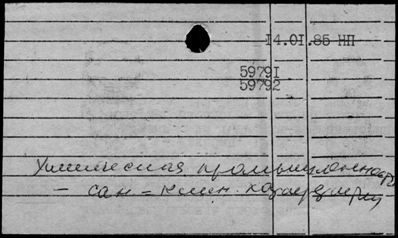 14.01.85 НП
59791
59792
Химическая промышленность
– сан = клин.